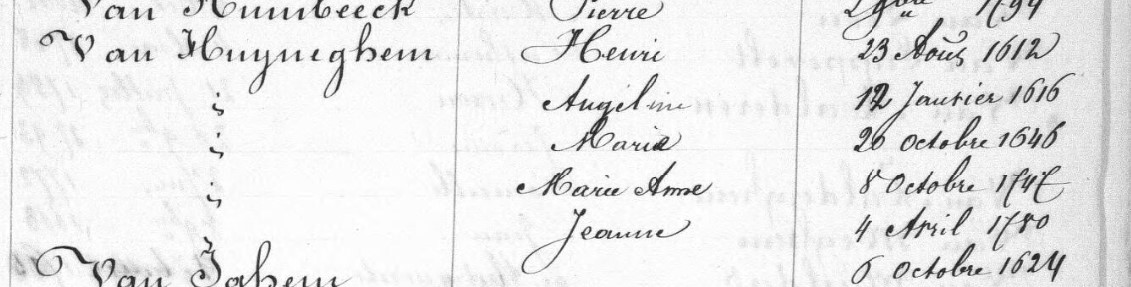 Van Humbeeck Pierre 1794
Van Huyneghem Henri 23 Août 1612
" Angeline 12 Janvier 1616
" Marie 20 Octobre 1646
" Marie Anne 8 Octobre 1747
" Jeanne 4 Avril 1780
Van Jahem 6 Octobre 1624